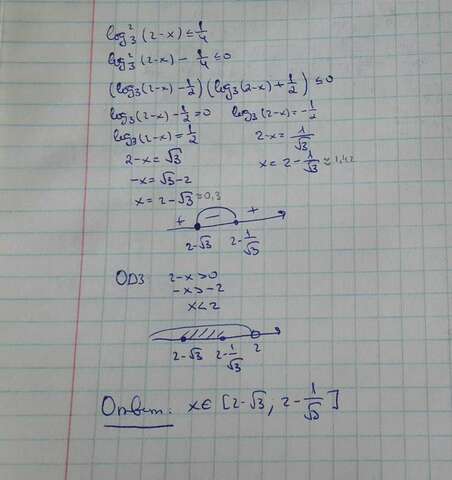 log₃²(2-x) ≤ 1/4
log₃²(2-x) - 1/4 ≤ 0
(log₃(2-x) - 1/2)(log₃(2-x) + 1/2) ≤ 0
log₃(2-x) - 1/2 = 0 log₃(2-x) = -1/2
log₃(2-x) = 1/2 2-x = 1/√3
2-x = √3 x = 2 - 1/√3 ≈ 1,42
-x = √3 - 2
x = 2 - √3 ≈ 0,3
+ - +
2-√3 2-1/√3
ОДЗ 2-x > 0
-x > -2
x < 2
2-√3 2-1/√3 2
Ответ: x ∈ [2-√3, 2-1/√3]